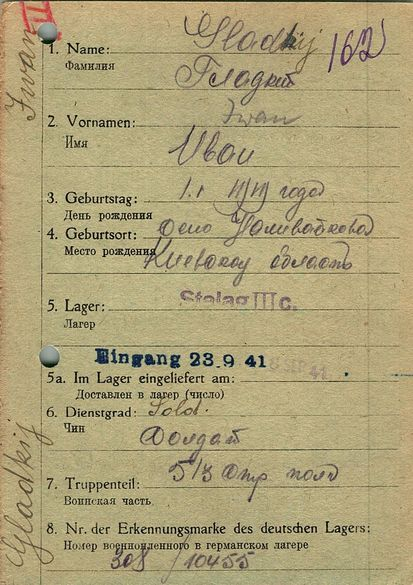 Iwan
II
1. Name: Gladkij 162
Фамилия Гладкий
2. Vornamen: Iwan
Имя Иван
3. Geburtstag: 1.1 года
День рождения
4. Geburtsort: село
Место рождения Киевской область
5. Lager: Stalag III c.
Лагер
Eingang 23.9 41
SEP 41
5a. Im Lager eingeliefert am:
Доставлен в лагер (число)
6. Dienstgrad: Sold.
Чин Солдат
7. Truppenteil: 513 стр полк
Воинская часть
8. Nr. der Erkennungsmarke des deutschen Lagers:
Номер военнопленного в германском лагере
308 / 10455
Gladkij